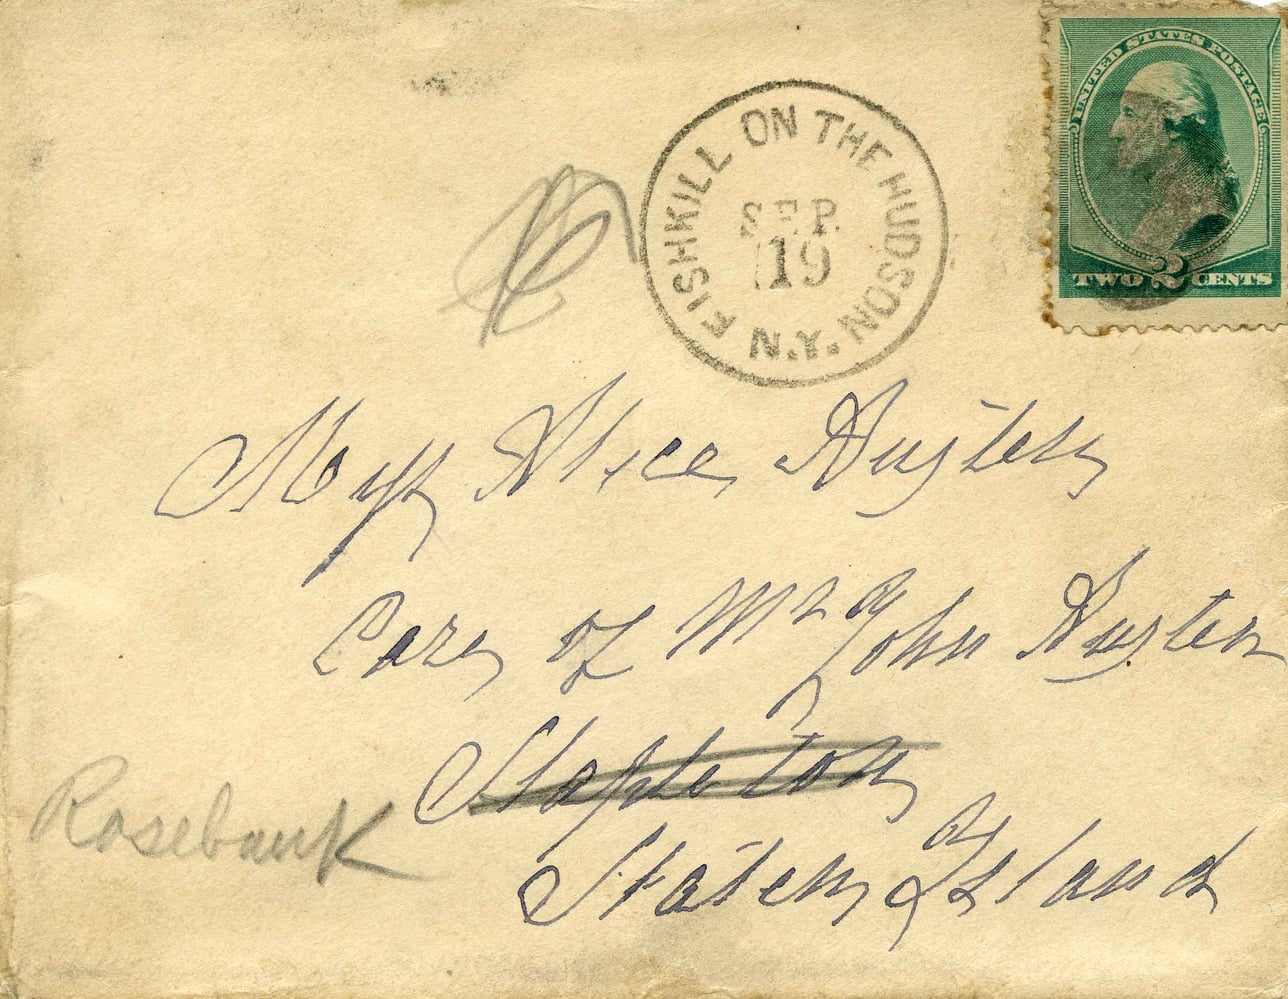 FISHKILL ON THE HUDSON
N.Y.
SEP
19
UNITED STATES POSTAGE
TWO 2 CENTS
Miss Alice Austen
Care of Mr John Austen
Stapleton
Rosebank
Staten Island